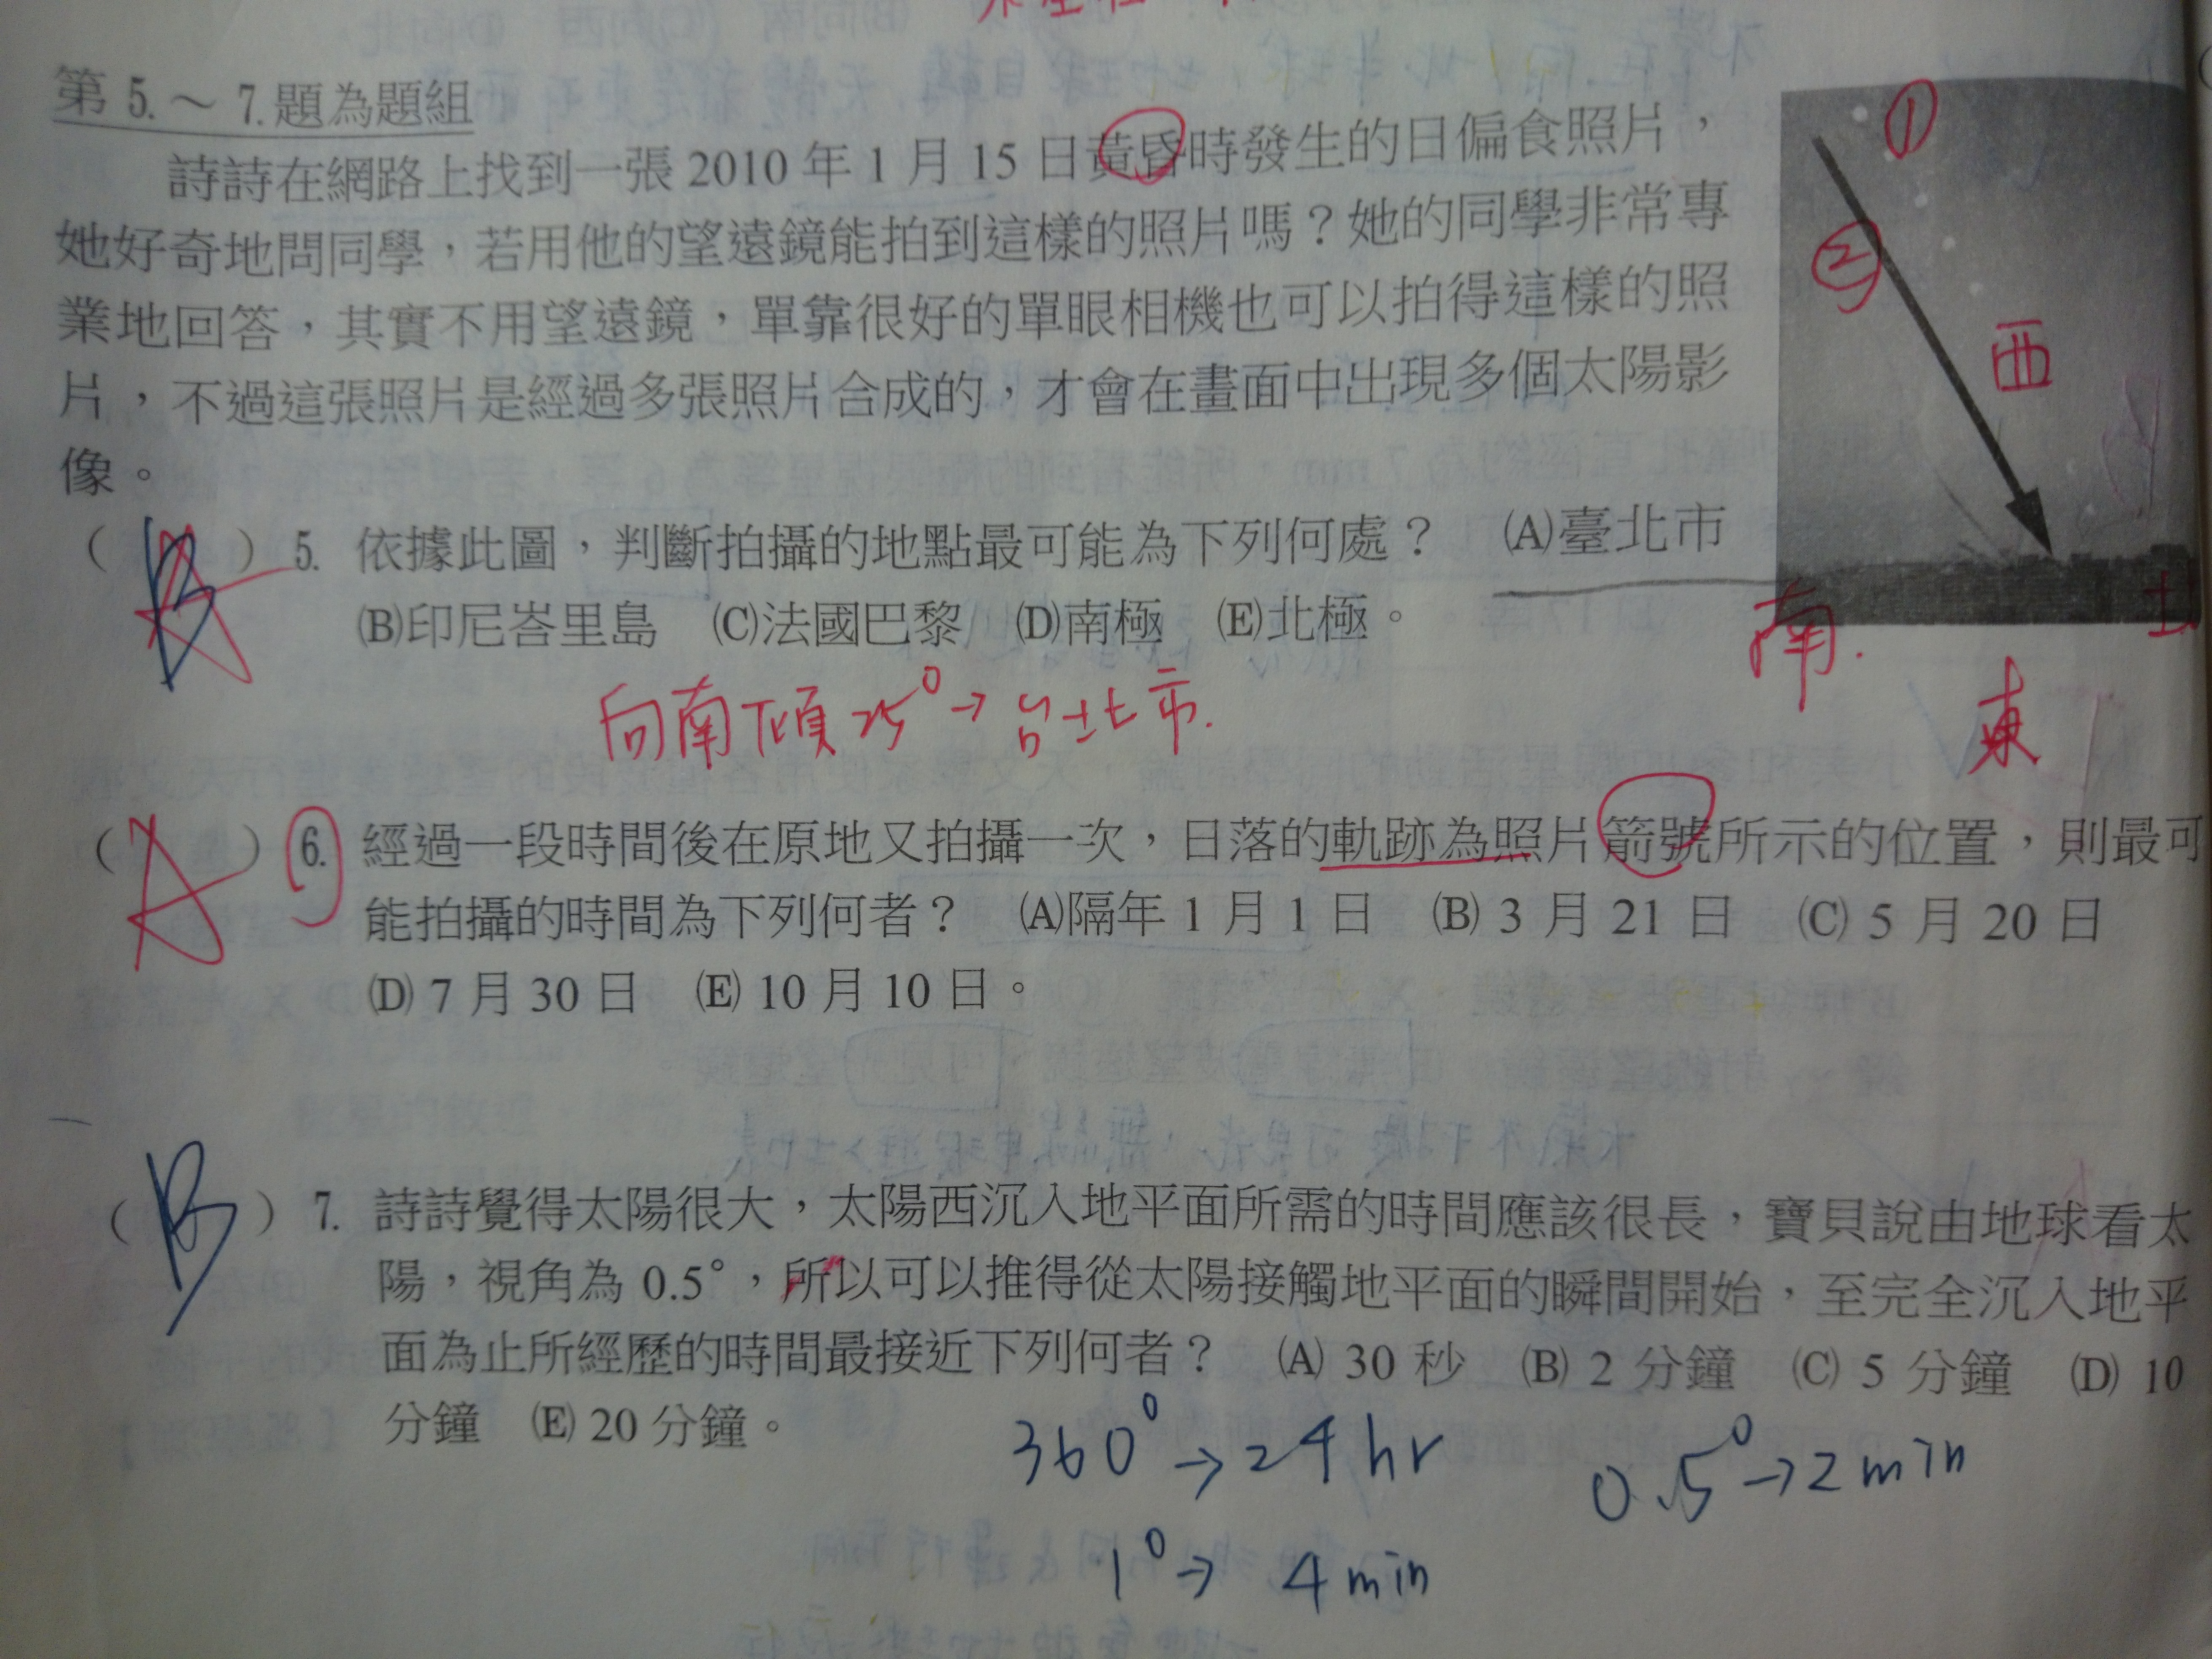 第 5.～ 7.題為題組
詩詩在網路上找到一張 2010 年 1 月 15 日黃昏時發生的日偏食照片，
她好奇地問同學，若用他的望遠鏡能拍到這樣的照片嗎？她的同學非常專
業地回答，其實不用望遠鏡，單靠很好的單眼相機也可以拍得這樣的照
片，不過這張照片是經過多張照片合成的，才會在畫面中出現多個太陽影
像。
①
②
西
南.
北
東
（ A ） 5. 依據此圖，判斷拍攝的地點最可能為下列何處？ (A)臺北市
(B)印尼峇里島 (C)法國巴黎 (D)南極 (E)北極。
向南傾25°→台北市.
（ A ） 6. 經過一段時間後在原地又拍攝一次，日落的軌跡為照片箭號所示的位置，則最可
能拍攝的時間為下列何者？ (A)隔年 1 月 1 日 (B) 3 月 21 日 (C) 5 月 20 日
(D) 7 月 30 日 (E) 10 月 10 日。
（ B ） 7. 詩詩覺得太陽很大，太陽西沉入地平面所需的時間應該很長，寶貝說由地球看太
陽，視角為 0.5°，所以可以推得從太陽接觸地平面的瞬間開始，至完全沉入地平
面為止所經歷的時間最接近下列何者？ (A) 30 秒 (B) 2 分鐘 (C) 5 分鐘 (D) 10
分鐘 (E) 20 分鐘。
360°→24hr
0.5°→2min
1°→ 4min